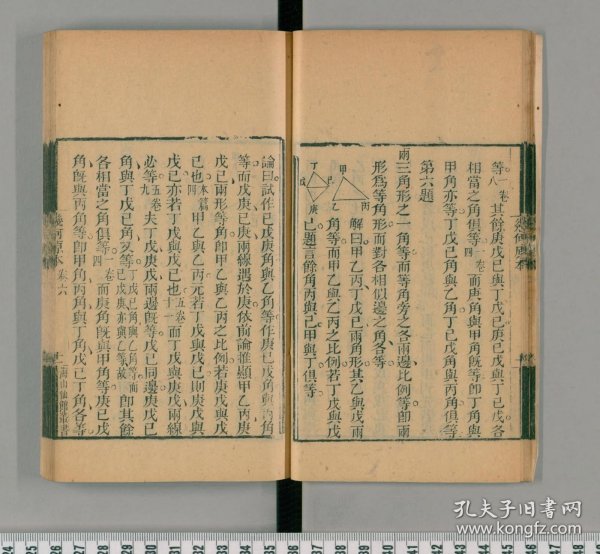 等一卷八其餘庚戊己與丁戊己庚己戊與丁己戊各
相當之角俱等一卷四而庚角與甲角旣等卽丁角與
甲角亦等丁戊己角與乙角丁己戊角與丙角俱等
第六題
兩三角形之一角等而等角旁之各兩邊比例等卽兩
形爲等角形而對各相似邊之角各等
甲
乙
丙
丁
戊
己
庚
解曰甲乙丙丁戊己兩角形其乙與戊兩
角等而甲乙與乙丙之比例若丁戊與戊
己題言餘角丙與己甲與丁俱等
幾何原本
論曰試作己戊庚角與乙角等作庚己戊角與丙角
等而戊庚己庚兩線遇於庚依前論推顯甲乙丙庚
戊己兩形等角卽甲乙與乙丙之比例若庚戊與戊
己也本篇四甲乙與乙丙元若丁戊與戊己則庚戊與
戊己亦若丁戊與戊己也五卷十一而丁戊與庚戊兩線
必等五卷九夫丁戊庚戊兩邊旣等戊己同邊庚戊己
角與丁戊己角又等丁戊己角與乙角等而己戊庚亦與乙等故卽其餘
各相當之角俱等一卷四而庚角旣與甲角等庚己戊
角旣與丙角等卽甲角丙角戊己丁角各等
幾何原本 卷六 海山仙館叢書
孔夫子旧书网
www.kongfz.com
24 25 26 27 28 29 30 31 32 33 34 35 36 37 38 39 40 41 42 43 44 45 46 47 48